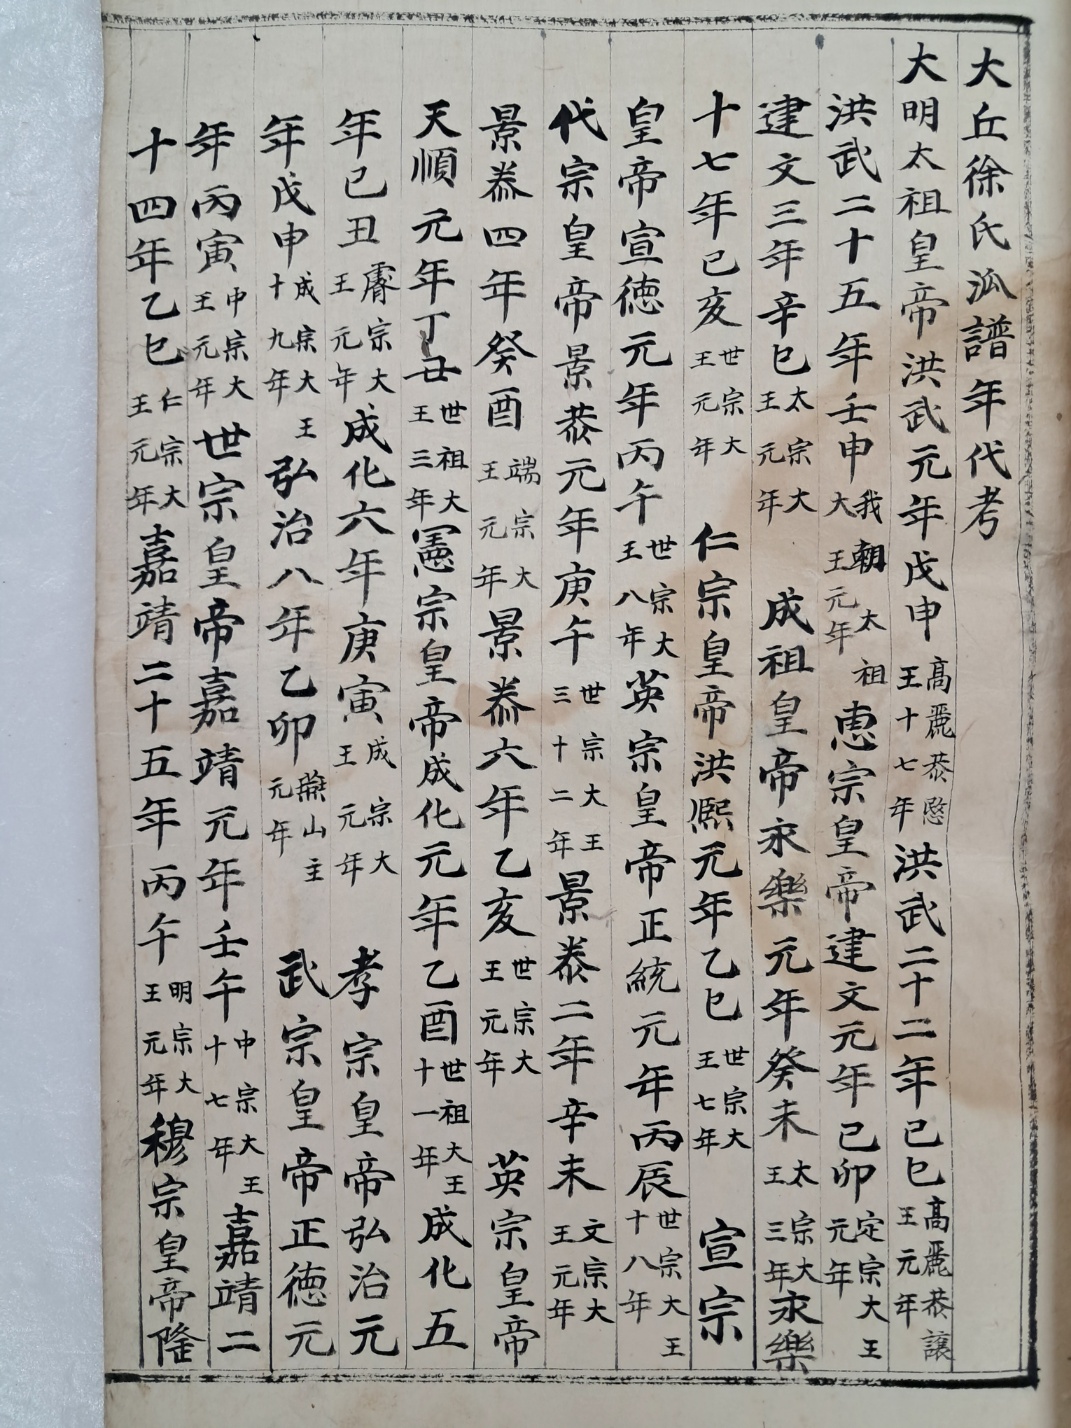 大丘徐氏派譜年代考
大明太祖皇帝洪武元年戊申高麗恭愍王十七年洪武二十二年己巳高麗恭讓王元年
洪武二十五年壬申我朝太祖大王元年恵宗皇帝建文元年己卯定宗大王元年
建文三年辛巳太宗大王元年成祖皇帝永樂元年癸未太宗大王三年永樂
十七年己亥世宗大王元年仁宗皇帝洪熙元年乙巳世宗大王七年宣宗
皇帝宣德元年丙午世宗大王八年英宗皇帝正統元年丙辰世宗大王十八年
代宗皇帝景泰元年庚午世宗大王三十二年景泰二年辛未文宗大王元年
景泰四年癸酉端宗大王元年景泰六年乙亥世宗大王元年英宗皇帝
天順元年丁丑世祖大王三年憲宗皇帝成化元年乙酉世祖大王十一年成化五
年己丑睿宗大王元年成化六年庚寅成宗大王元年孝宗皇帝弘治元
年戊申成宗大王十九年弘治八年乙卯燕山主元年武宗皇帝正德元
年丙寅中宗大王元年世宗皇帝嘉靖元年壬午中宗大王十七年嘉靖二
十四年乙巳仁宗大王元年嘉靖二十五年丙午明宗大王元年穆宗皇帝隆